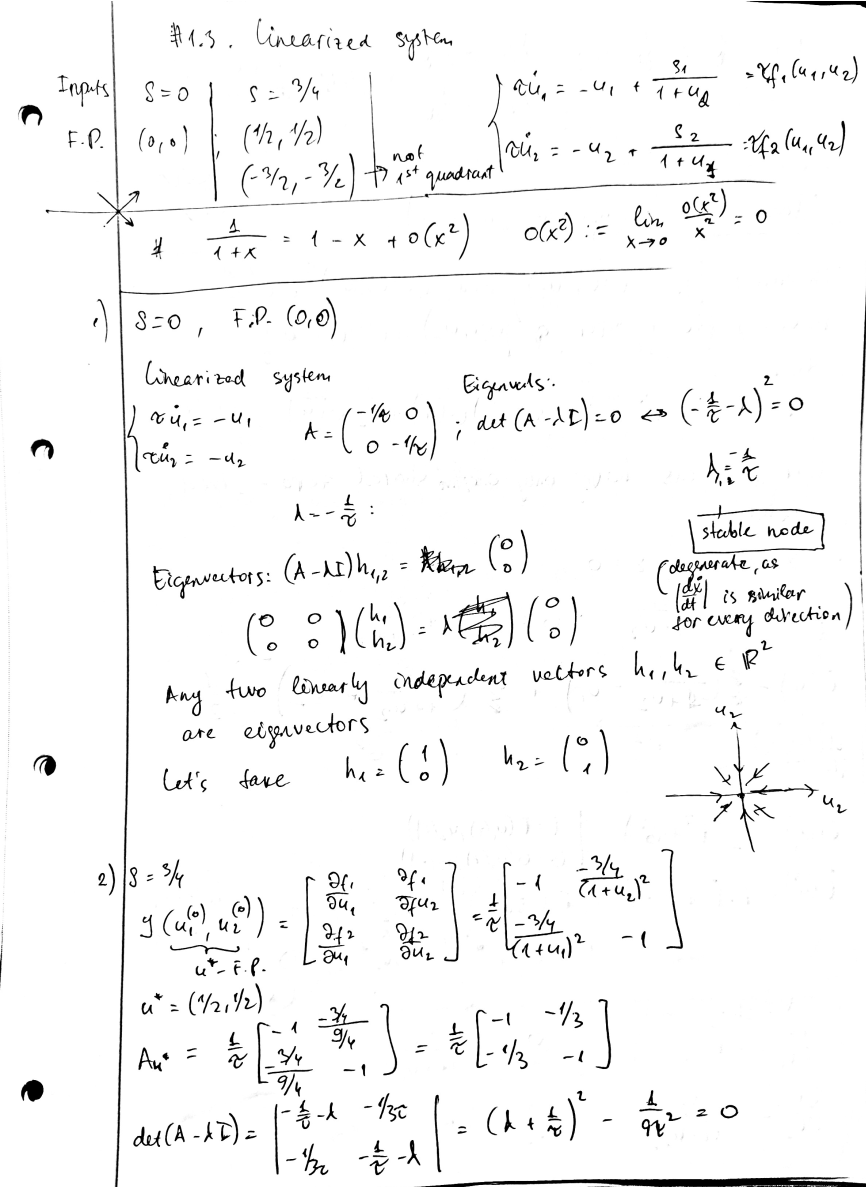 #1.3. Linearized system
Inputs S=0 | S = 3/4 | τu̇₁ = -u₁ + S₁/(1+u₂) = τf₁(u₁,u₂)
F.P. (0,0) ; (1/2, 1/2) τu̇₂ = -u₂ + S₂/(1+u₁) = τf₂(u₁,u₂)
(-3/2, -3/2) → not 1st quadrant
# 1/(1+x) = 1 - x + o(x²) o(x²) := lim x→0 o(x²)/x² = 0
1) S=0, F.P. (0,0)
Linearized system Eigenvals:
{ τu̇₁ = -u₁ A = (-1/τ 0
τu̇₂ = -u₂ 0 -1/τ) ; det(A-λI)=0 ↔ (-1/τ - λ)² = 0
λ₁,₂ = -1/τ
λ = -1/τ :
stable node
Eigenvectors: (A-λI)h₁,₂ = (0 0)
(degenerate, as |dẋ/dt| is similar for every direction)
(0 0
0 0)(h₁ h₂) = (0 0)
Any two linearly independent vectors h₁, h₂ ∈ ℝ²
are eigenvectors
Let's take h₁ = (1 0) h₂ = (0 1)
u₂
u₂
2) S = 3/4
J(u₁⁽⁰⁾, u₂⁽⁰⁾) = [∂f₁/∂u₁ ∂f₁/∂u₂
∂f₂/∂u₁ ∂f₂/∂u₂] = 1/τ [-1 -3/4/(1+u₂)²
-3/4/(1+u₁)² -1]
u* - F.P.
u* = (1/2, 1/2)
A_u* = 1/τ [-1 -3/4/9/4
-3/4/9/4 -1] = 1/τ [-1 -1/3
-1/3 -1]
det(A-λI) = |-1/τ-λ -1/3τ
-1/3τ -1/τ-λ| = (λ + 1/τ)² - 1/9τ² = 0